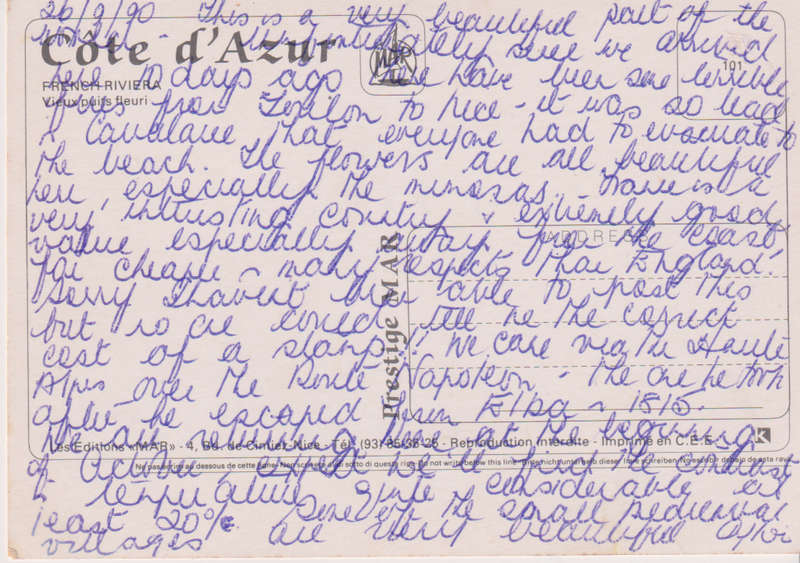 26/9/90 This is a very beautiful part of the
world - unfortunately since we arrived
Côte d'Azur
MAR
101
here 10 days ago there have been some terrible
FRENCH RIVIERA
Vieux puits fleuri
fires from Toulon to Nice - it was so bad
in Cavalaire that everyone had to evacuate to
the beach. The flowers are all beautiful
here, especially the mimosas. France is a
very interesting country & extremely good
value especially away from the coast,
ADDRESS
far cheaper in many respects than England.
Sorry I haven't been able to post this
but no one could tell me the correct
cost of a stamp!! We came via the Haute
Alpes over the Route Napoleon - the one he took
after he escaped from Elba in 1815.
Prestige MAR
We are returning home at the beginning
Les Editions «MAR» - 4, Bd. de Cimiez-Nice - Tél. (93) 85-35-25 - Reproduction interdite - Imprimé en C.E.E.
K
of October - expect we'll find the contrast
Ne pas écrire au dessous de cette ligne - Non scrivere al di sotto di questa riga - Do not write below this line - Bitte nicht unterhalb dieser
in temperature quite considerable at
least 20%. Some of the small medieval
villages are very beautiful